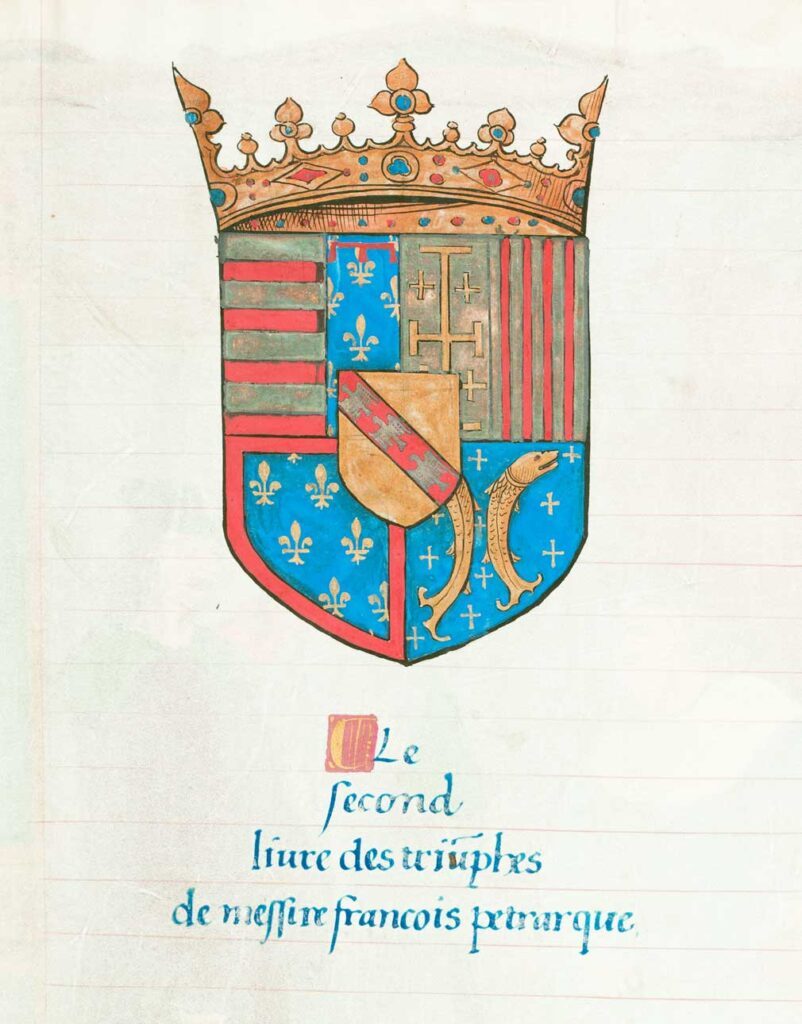 Le
second
liure des triũphes
de messire francois petrarque